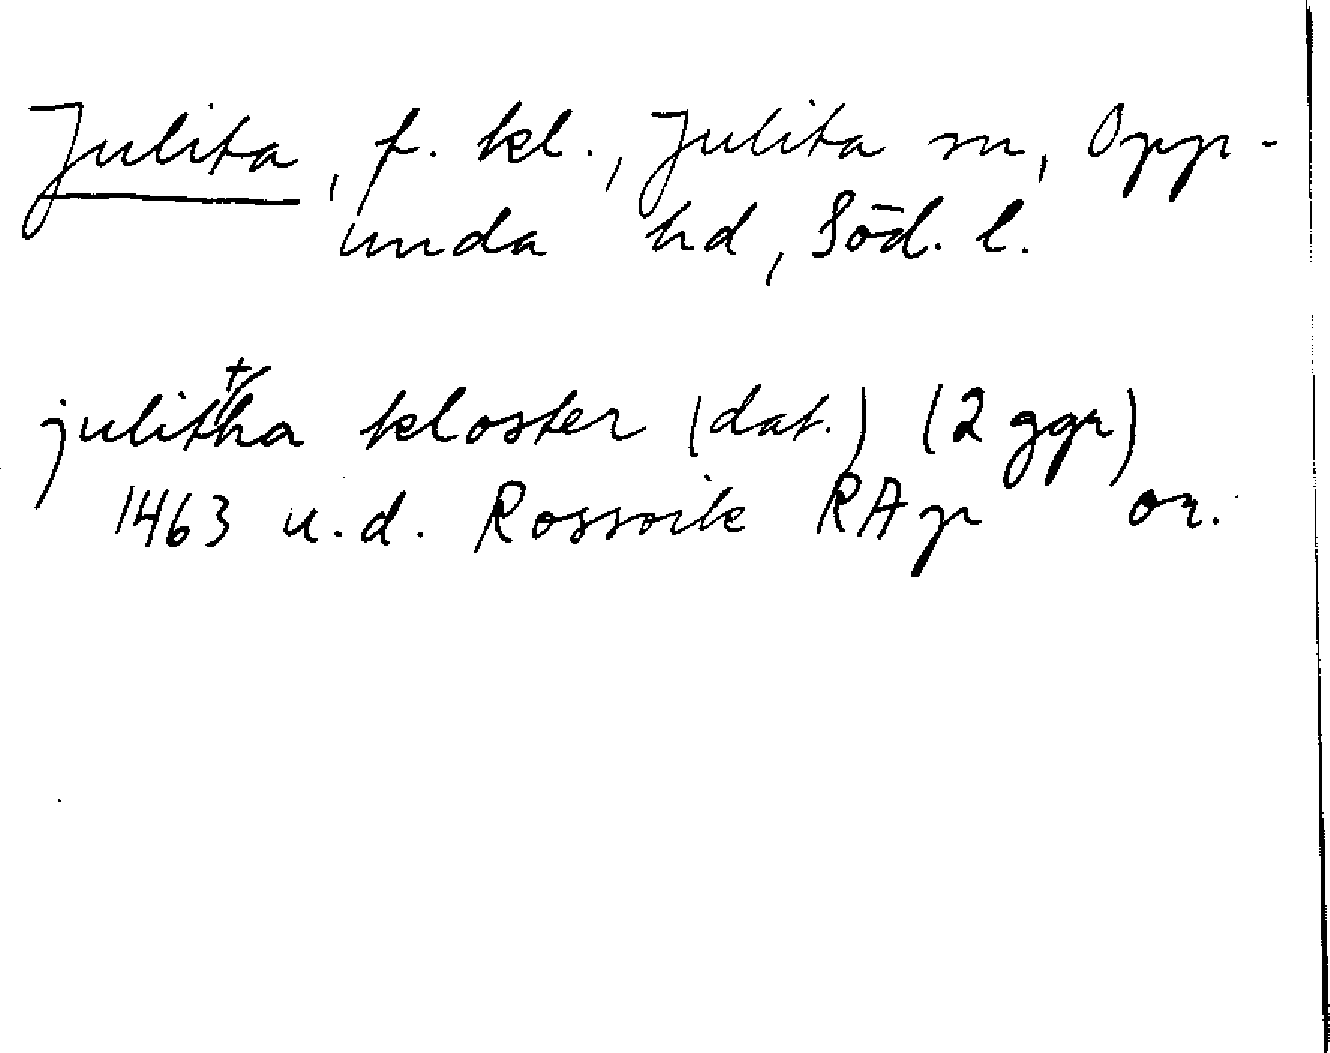 Julita, f. kl., Julita sn, Opp-
unda hd, Söd. l.
julittha kloster (dat.) (2 ggr)
1463 u.d. Rossvik RAp or.